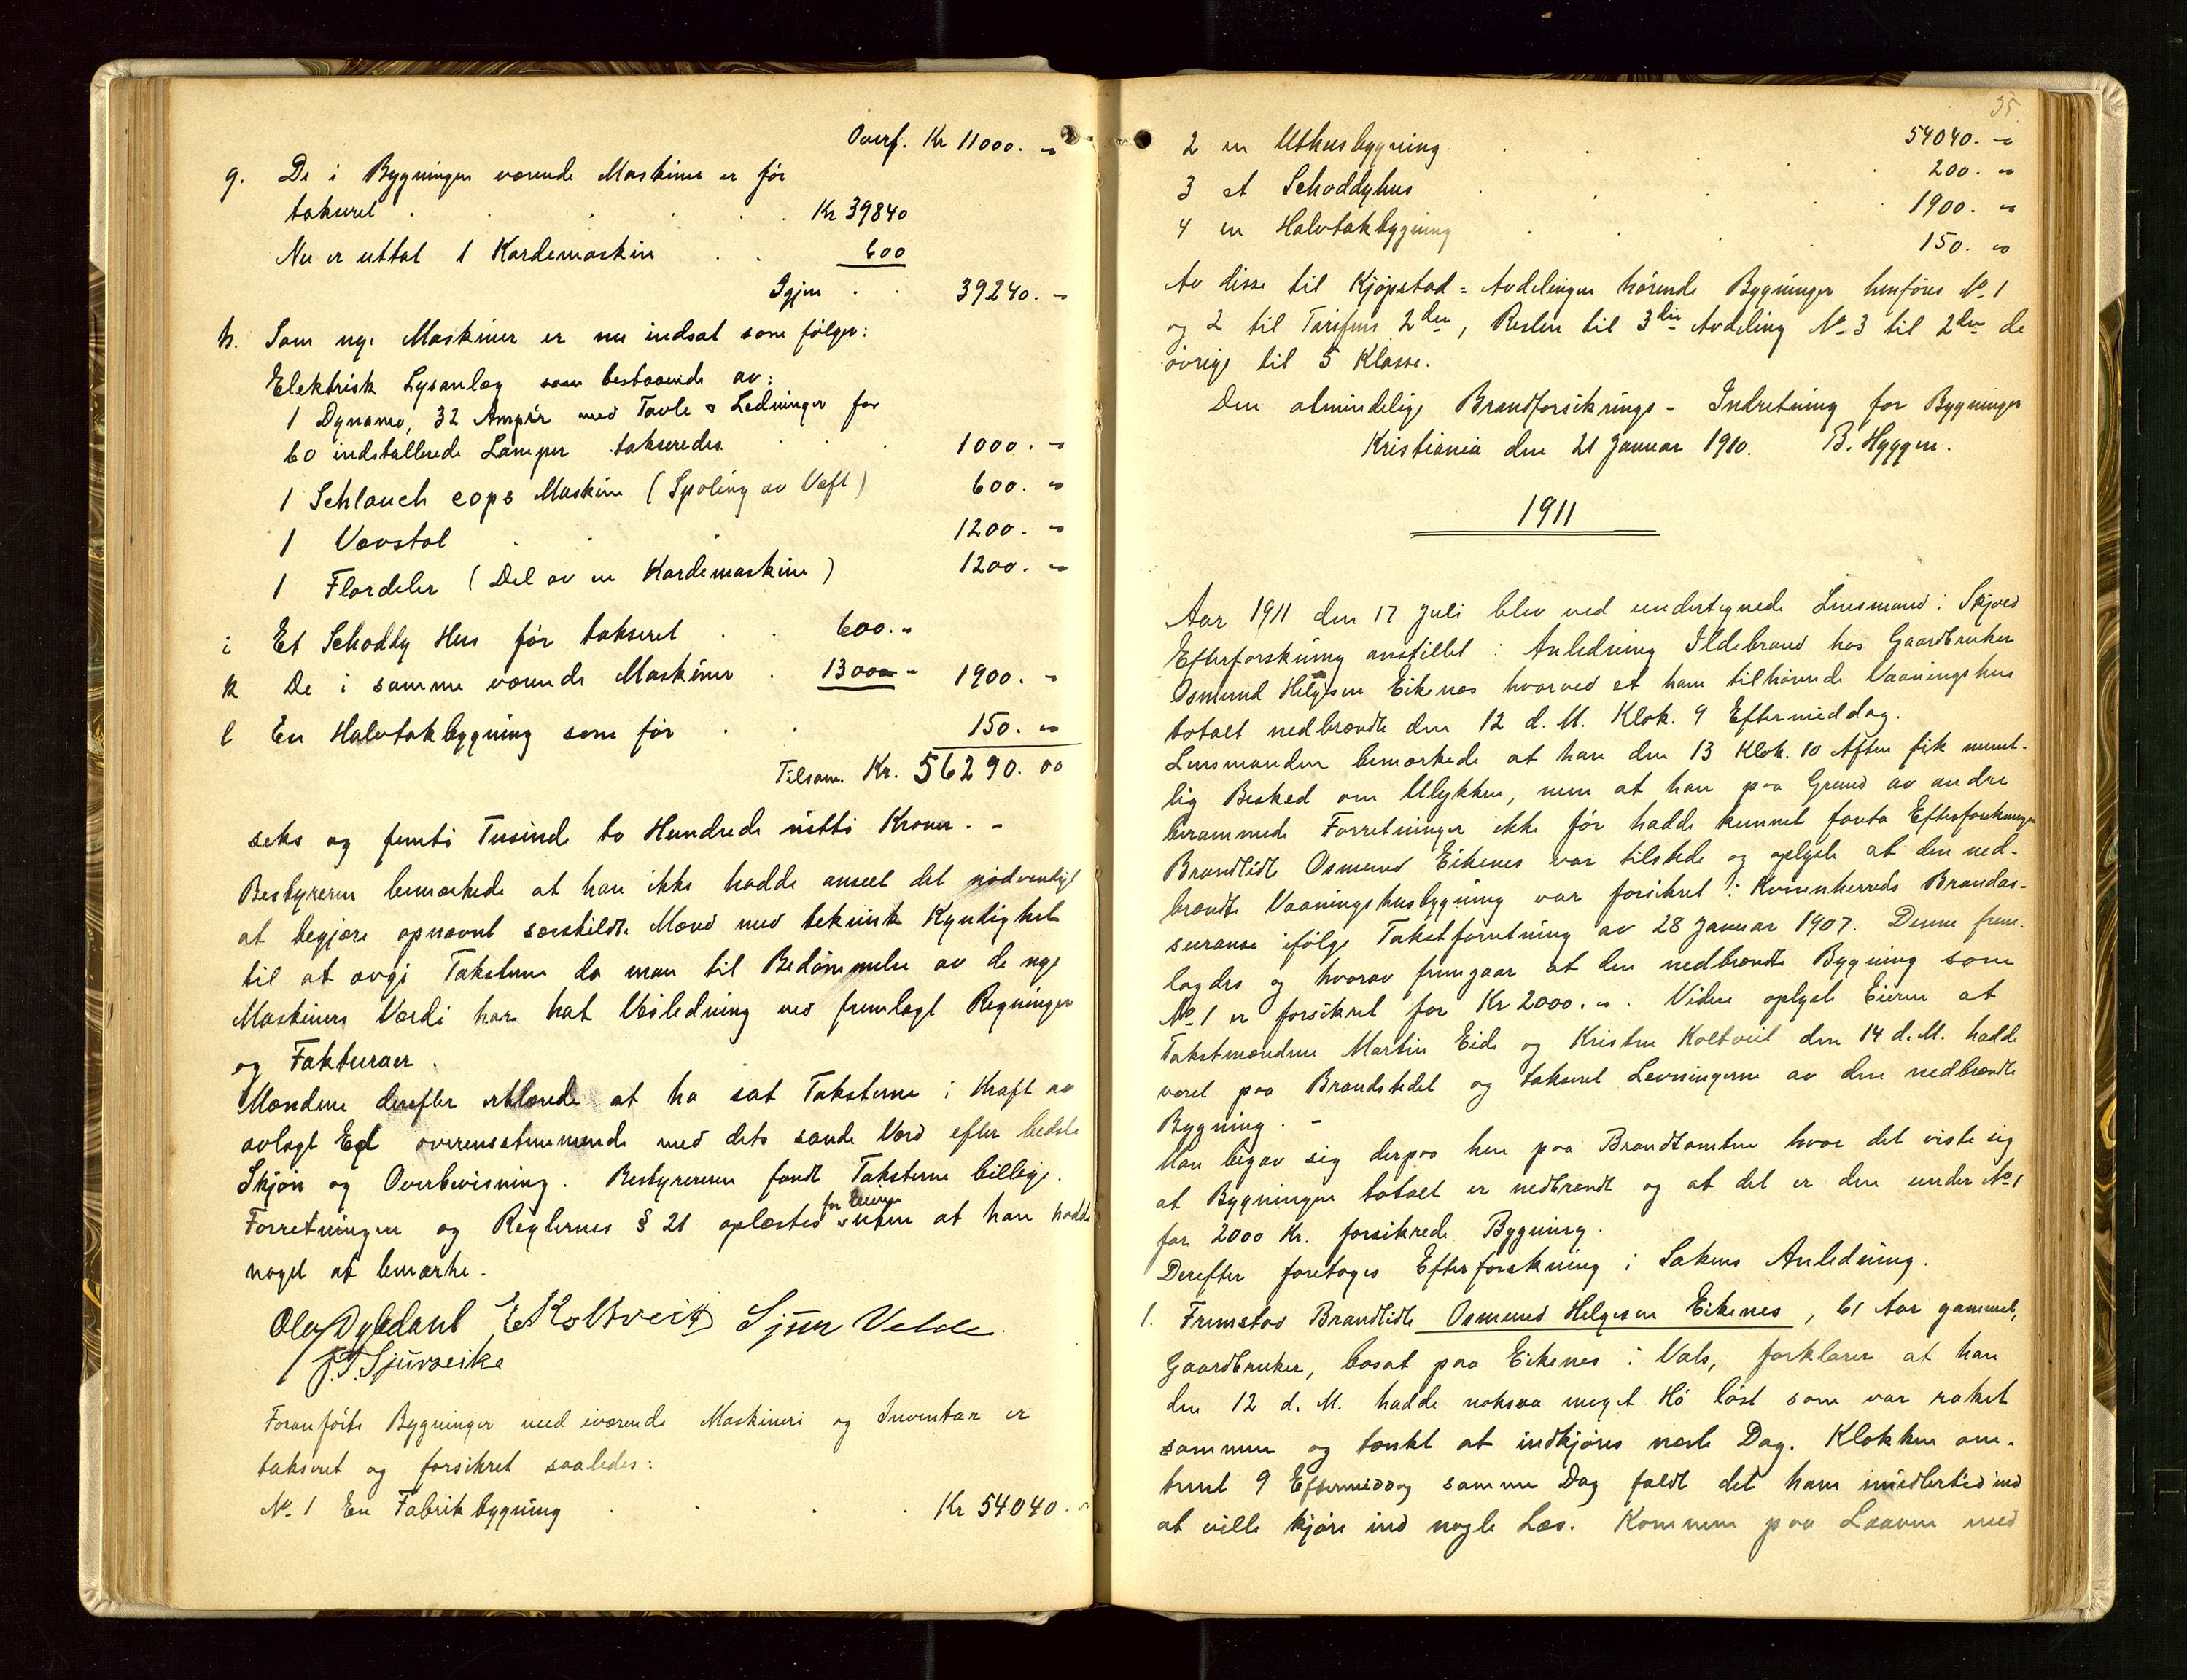 Overf. Kr 11000. -
g. De i Bygningen værende Maskiner er før
taksert . . . . Kr 39840
Nu er uttat 1 Kardemaskin . . 600
Igjen . . 39240. -
h. Som nye Maskiner er nu indsat som følger:
Elektrisk Lysanlæg som bestaaende av:
1 Dynamo, 32 Ampér med Tavle & Ledninger for
60 indstallerede Lamper taksredes . . . 1000. -
1 Schlauch cops Maskine (Spoling av Veft) 600. -
1 Vævstol . . . 1200. -
1 Flordeler (Del av en Kardemaskine) 1200. -
i Et Schoddy Hus før taksert . . 600. -
k De i samme værende Maskiner . 1300 - 1900. -
l En Halvtakbygning som før . . 150. -
Tilsam. Kr. 56290. 00
seks og femti Tusind to Hundrede nitti Kroner. -
Bestyreren bemærkede at han ikke hadde anseet det nødvendigt
at begjære opnævnt særskildte Mænd med teknisk Kyndighet
til at avgi Taksterne da man til Bedømmelse av de nye
Maskiners Værdi har hat Veiledning ved fremlagt Regninger
og Fakturaer.
Mændene derefter erklærede at ha sat Taksterne i Kraft av
avlagt Ed overensstemmende med dets sande Værd efter bedste
Skjøn og Overbevisning. Bestyreren fandt Taksterne billige.
for Eieren
Forretningen og Reglernes § 21 oplæstes uten at han hadde
noget at bemærke.
E Koltveit Sjur Velde
J. T. Sjurseike
Foranførte Bygninger med iværende Maskineri og Inventar er
taksert og forsikret saaledes:
No. 1 En Fabrikbygning . . . Kr 54040. -
35.
54040. -
2 en Uthusbygning . . . 200. -
3 et Schoddyhus . . . 1900. -
4 en Halvtakbygning . . . 150. -
Av disse til Kjøpstad = Avdelingen hørende Bygninger henføres No. 1
og 2 til Tarifens 2den, Resten til 3die Avdeling No. 3 til 2den de
øvrige til 5 Klasse.
Den almindelige Brandforsikrings - Indretning for Bygninger
Kristiania den 21 Januar 1910. B. Hyggen.
1911
Aar 1911 den 17 Juli blev ved undertegnede Lensmand i Skjold
Efterforskning anstillet i Anledning Ildebrand hos Gaardbruker
Osmund Helgesen Eikenes hvorved et ham tilhørende Vaaningshus
totalt nedbrændte den 12 d. M. Klok. 9 Eftermiddag.
Lensmanden bemærkede at han den 13 Klok. 10 Aften fik mundt-
lig Besked om Ulykken, men at han paa Grund av andre
berammede Forretninger ikke før hadde kunnet foreta Efterforskningen
Brandlidte Osmund Eikenes var tilstede og oplyste at den ned-
brændte Vaaningshusbygning var forsikret i Kvinnherreds Brandas-
suranse ifølge Takstforretning av 28 Januar 1907. Denne frem-
lagdes og hvorav fremgaar at den nedbrændte Bygning som
No. 1 er forsikret for Kr 2000. -. Videre oplyste Eieren at
Takstmændene Martin Eide og Kristen Koltveit den 14 d. M. hadde
været paa Brandstedet og taksert Levningerne av den nedbrændte
Bygning. -
Man begav sig derpaa hen paa Brandtomten hvor det viste sig
at Bygningen totalt er nedbrændt og at det er den under No. 1
for 2000 Kr. forsikrede Bygning.
Derefter foretoges Efterforskning i Sakens Anledning.
1. Fremstod Brandlidte Osmund Helgesen Eikenes, 61 Aar gammel,
Gaardbruker, bosat paa Eikenes i Vats, forklarer at han
den 12 d. M. hadde noksaa meget Hø løst som var raket
sammen og tænkt at indkjøres neste Dag. Klokken om-
trent 9 Eftermiddag samme Dag faldt det ham imidlertid ind
at ville kjøre ind nogle Læs. Kommen paa Laaven med